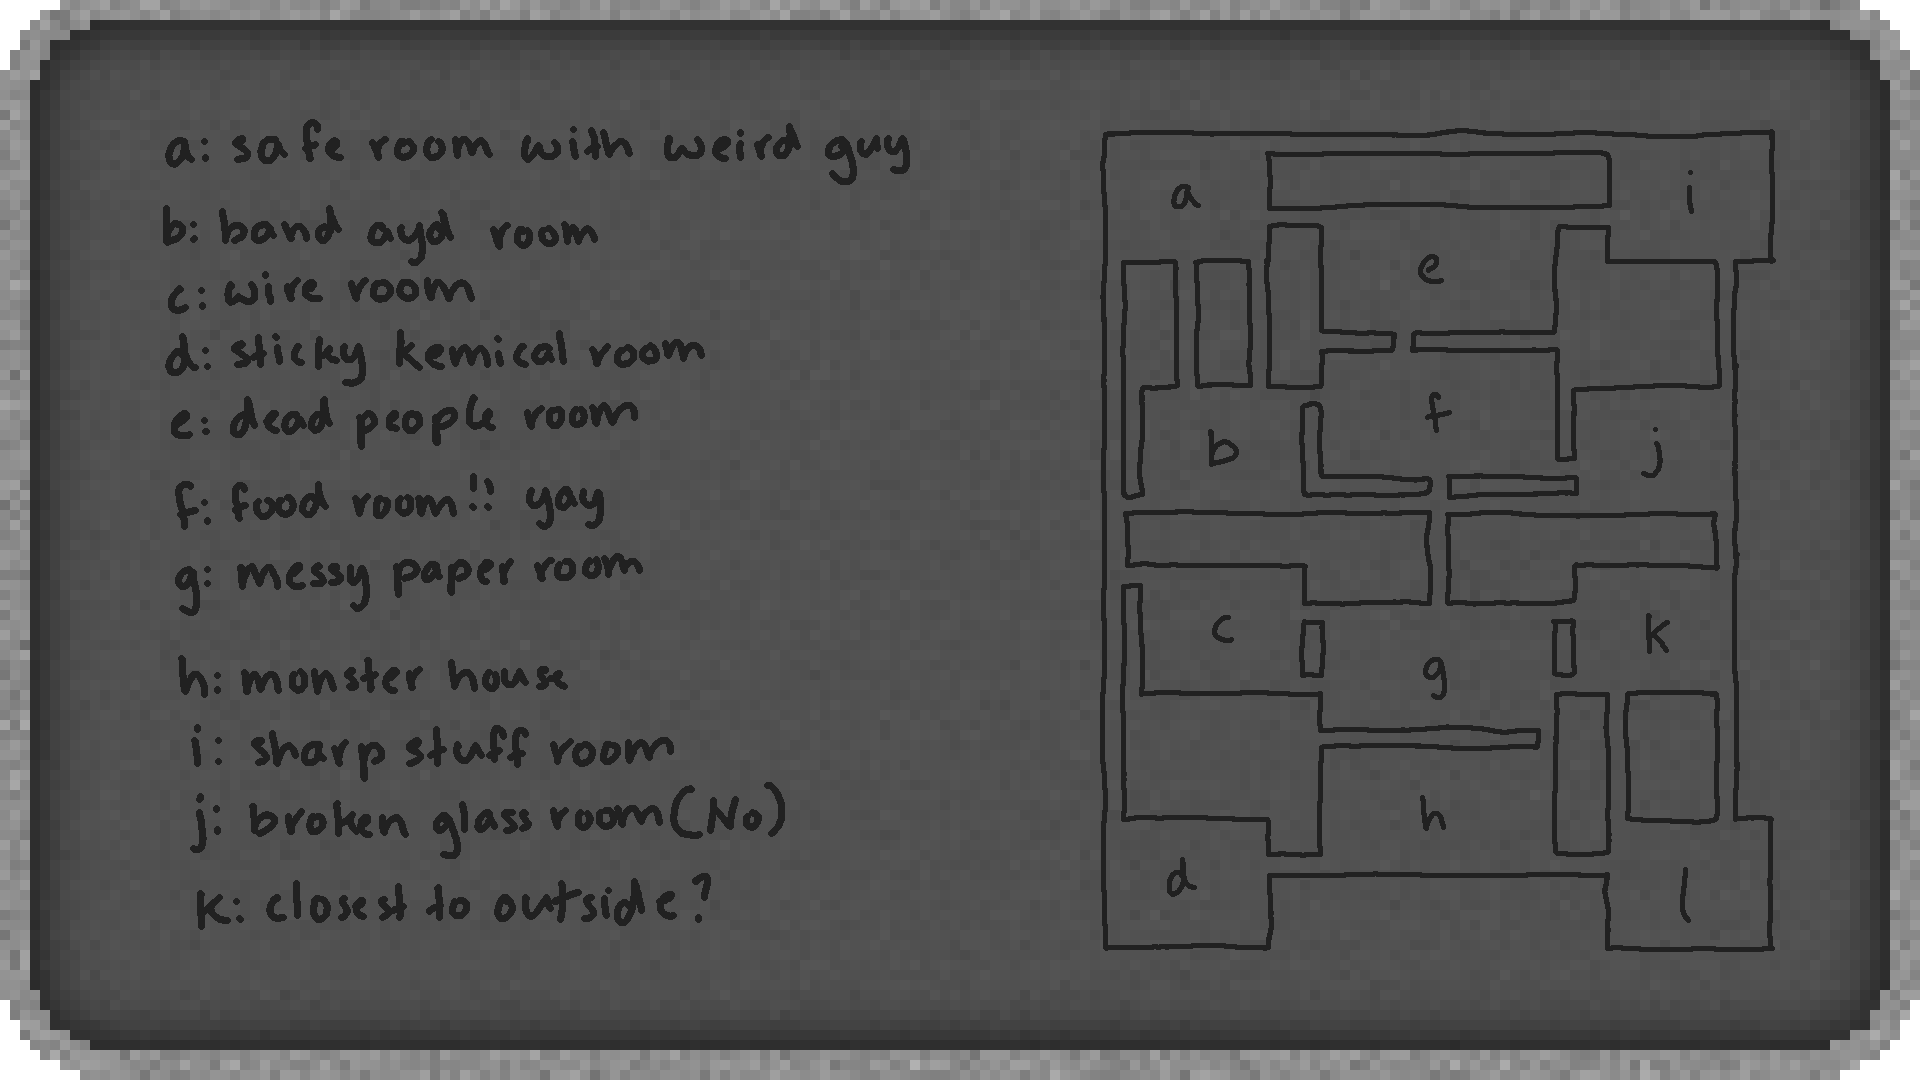 a: safe room with weird guy
b: band ayd room
c: wire room
d: sticky kemical room
e: dead people room
f: food room!! yay
g: messy paper room
h: monster house
i: sharp stuff room
j: broken glass room (No)
k: closest to outside?
a
i
e
f
b
j
c
k
g
h
d
l